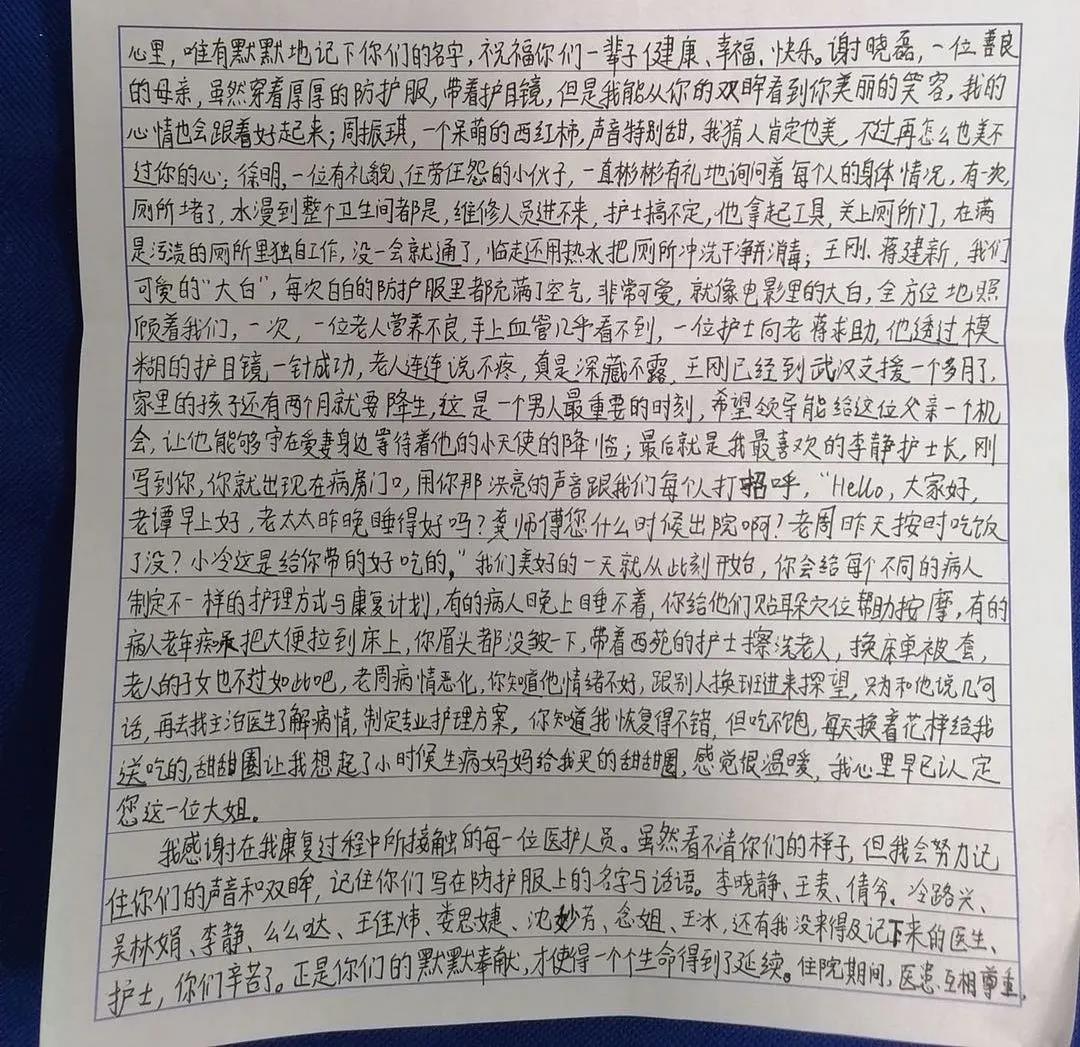 心里，唯有默默地记下你们的名字，祝福你们一辈子健康、幸福、快乐。谢晓磊，一位善良
的母亲，虽然穿着厚厚的防护服，带着护目镜，但是我能从你的双眸看到你美丽的笑容，我的
心情也会跟着好起来；周振琪，一个呆萌的西红柿，声音特别甜，我猜人肯定也美，不过再怎么也美不
过你的心；徐明，一位有礼貌、任劳任怨的小伙子，一直彬彬有礼地询问着每个人的身体情况，有一次，
厕所堵了，水漫到整个卫生间都是，维修人员进不来，护士搞不定，他拿起工具，关上厕所门，在满
是污渍的厕所里独自工作，没一会就通了，临走还用热水把厕所冲洗干净并消毒；王刚、蒋建新，我们
可爱的“大白”，每次白白的防护服里都充满了空气，非常可爱，就像电影里的大白，全方位地照
顾着我们，一次，一位老人营养不良，手上血管几乎看不到，一位护士向老蒋求助，他透过模
糊的护目镜一针成功，老人连连说不疼，真是深藏不露，王刚已经到武汉支援一个多月了，
家里的孩子还有两个月就要降生，这是一个男人最重要的时刻，希望领导能给这位父亲一个机
会，让他能够守在爱妻身边等待着他的小天使的降临；最后就是我最喜欢的李静护士长，刚
写到你，你就出现在病房门口，用你那洪亮的声音跟我们每个人打招呼，“Hello，大家好，
老谭早上好，老太太昨晚睡得好吗？龚师傅您什么时候出院啊？老周昨天按时吃饭
了没？小冷这是给你带的好吃的。”我们美好的一天就从此刻开始，你会给每个不同的病人
制定不一样的护理方式与康复计划，有的病人晚上睡不着，你给他们贴耳穴位帮助按摩，有的
病人老年痴呆把大便拉到床上，你眉头都没皱一下，带着西苑的护士擦洗老人，换床单被套，
老人的子女也不过如此吧，老周病情恶化，你知道他情绪不好，跟别人换班进来探望，只为和他说几句
话，再去找主治医生了解病情，制定专业护理方案，你知道我恢复得不错，但吃不饱，每天换着花样给我
送吃的，甜甜圈让我想起了小时候生病妈妈给我买的甜甜圈，感觉很温暖，我心里早已认定
您这一位大姐。
我感谢在我康复过程中所接触的每一位医护人员。虽然看不清你们的样子，但我会努力记
住你们的声音和双眸，记住你们写在防护服上的名字与话语。李晓静、王麦、倩爷、冷路兴、
吴林娟、李静、么么哒、王佳炜、娄思婕、沈妙芳、念姐、王冰，还有我没来得及记下来的医生、
护士，你们辛苦了。正是你们的默默奉献，才使得一个个生命得到了延续。住院期间，医患互相尊重，